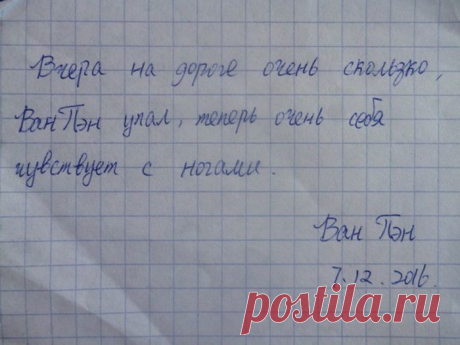 Вчера на дороге очень скользко,
Ван Пэн упал, теперь очень себя
чувствует с ногами.
Ван Пэн
7.12.2016.
postila.ru